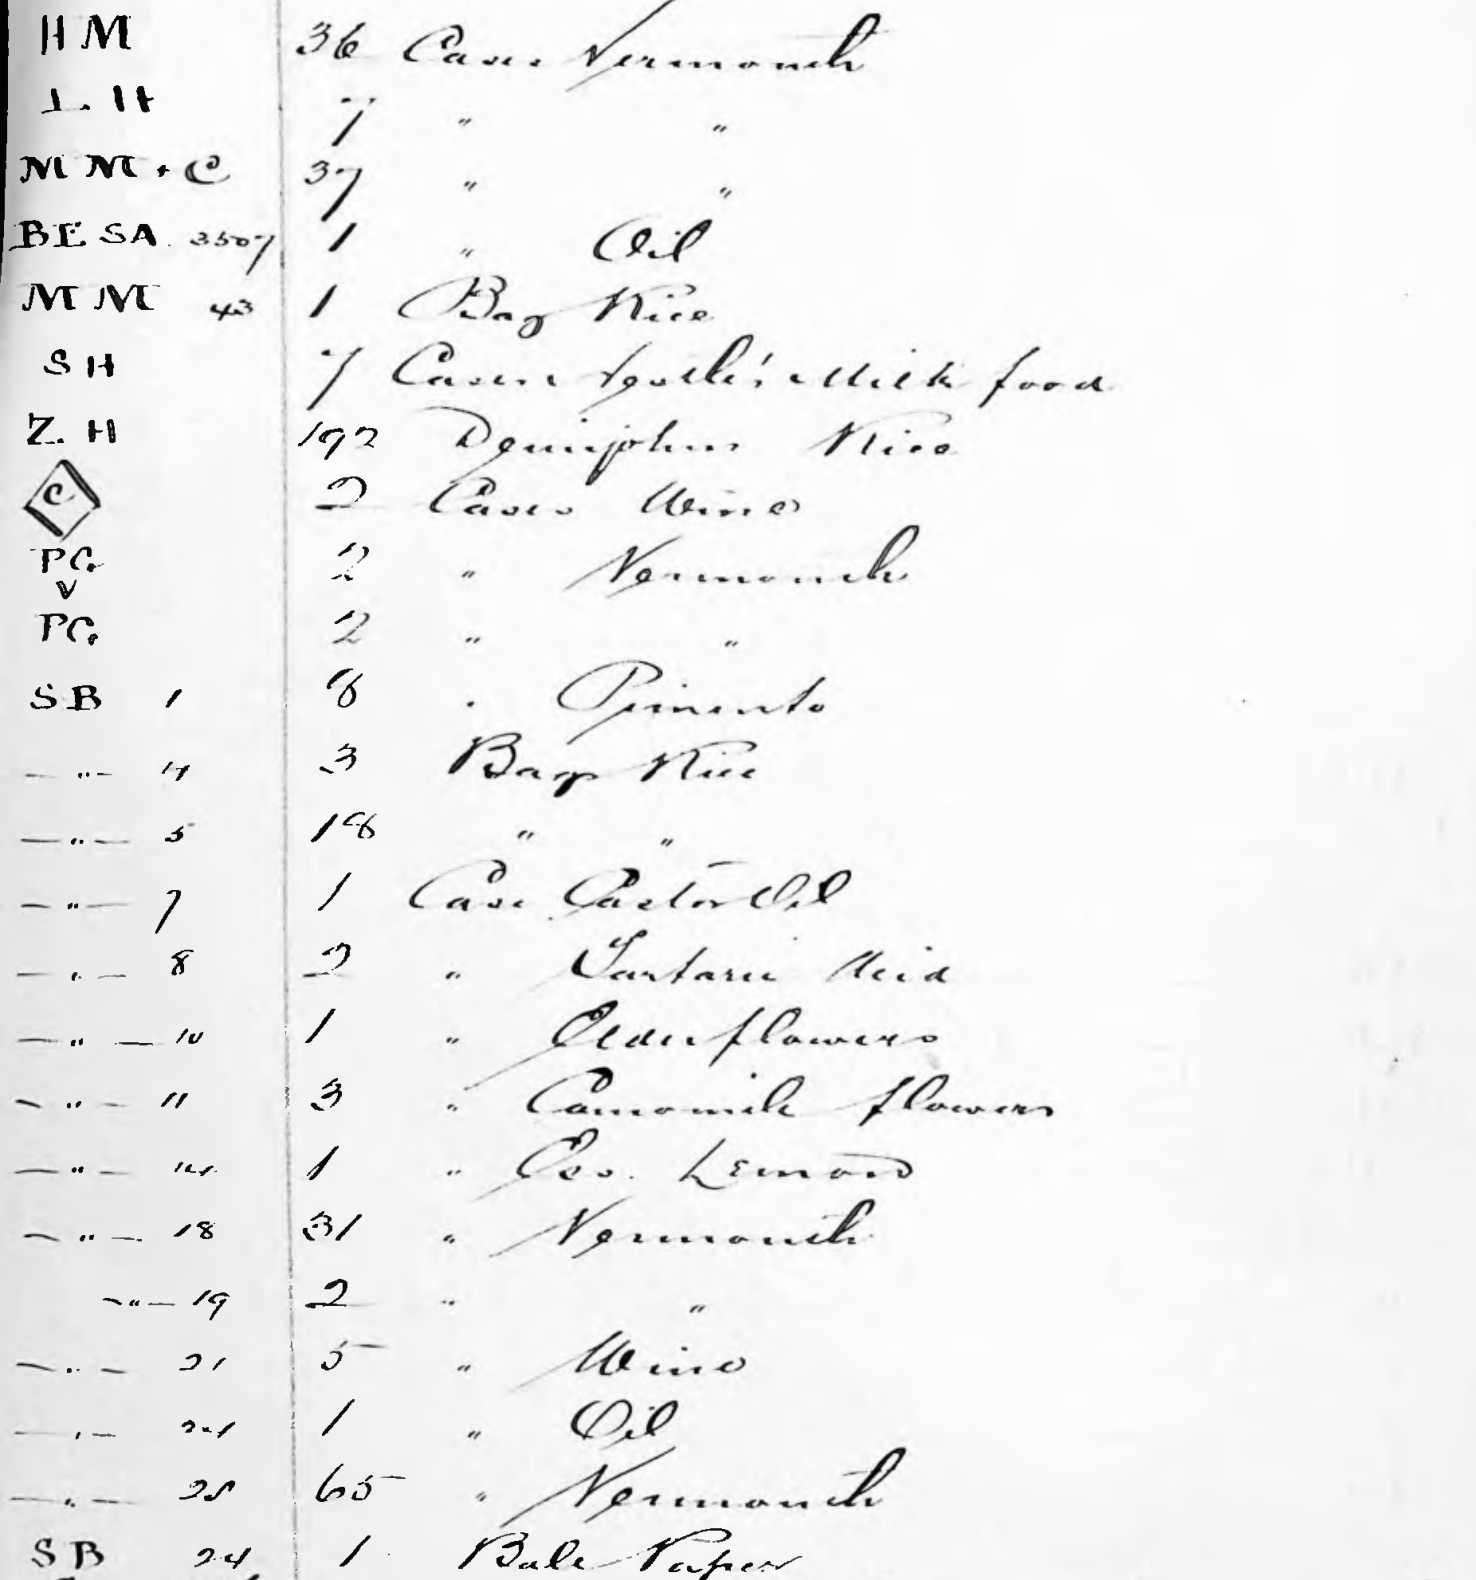 HM 36 Cases Vermouth
I. H 7 " "
MM + C 37 " "
BESA 3507 1 " Oil
MM 43 1 Bag Rice
SH 7 Cases Nestle's Milk food
Z. H 192 Demijohns Rice
C 2 Cases Wine
PC. 2 " Vermouth
V
PC. 2 " "
SB 1 8 " Pimento
— " — 4 3 Bags Rice
— " — 5 18 " "
— " — 7 1 Case Castor Oil
— " — 8 2 " Tartaric Acid
— " — 10 1 " Elder flowers
— " — 11 3 " Camomile flowers
— " — 14 1 " Ess. Lemon
— " — 18 31 " Vermouth
— " — 19 2 " "
— " — 21 5 " Wine
— " — 24 1 " Oil
— " — 25 65 " Vermouth
SB 24 1 Bale Paper